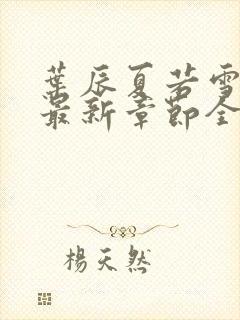 葉辰夏若雪
最新章節全
楊天然